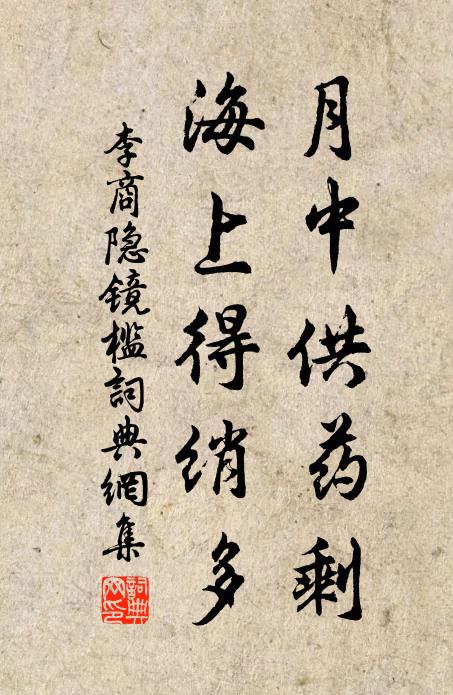 月中供药剩
海上得绡多
李商隐镜槛詞典網集
詞典网印